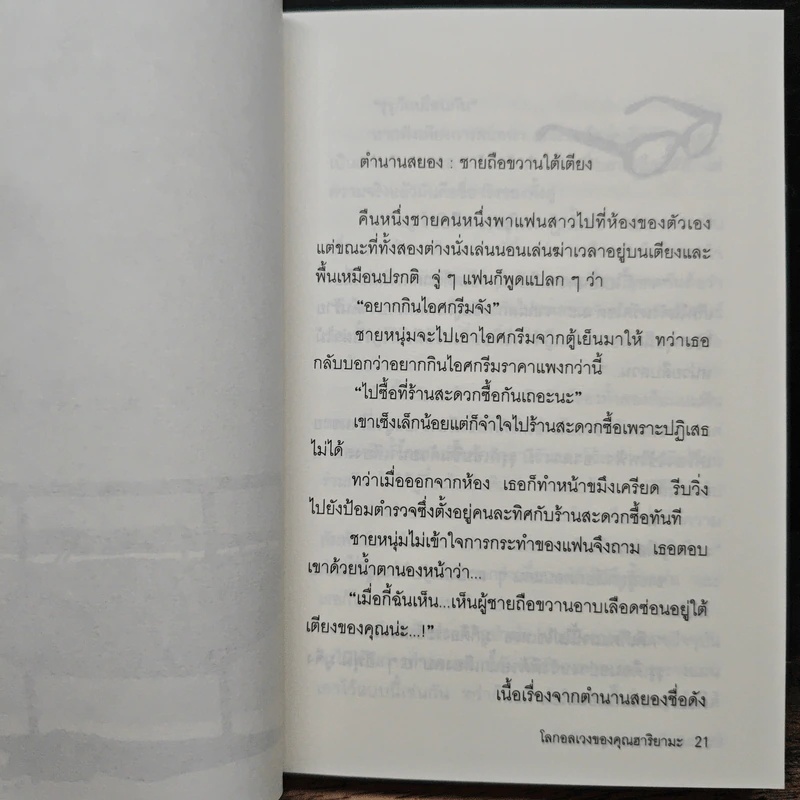 ตำนานสยอง : ชายถือขวานใต้เตียง
คืนหนึ่งชายคนหนึ่งพาแฟนสาวไปที่ห้องของตัวเอง
แต่ขณะที่ทั้งสองต่างนั่งเล่นนอนเล่นฆ่าเวลาอยู่บนเตียงและ
พื้นเหมือนปรกติ จู่ ๆ แฟนก็พูดแปลก ๆ ว่า
“อยากกินไอศกรีมจัง”
ชายหนุ่มจะไปเอาไอศกรีมจากตู้เย็นมาให้ ทว่าเธอ
กลับบอกว่าอยากกินไอศกรีมราคาแพงกว่านี้
“ไปซื้อที่ร้านสะดวกซื้อกันเถอะนะ”
เขาเซ็งเล็กน้อยแต่ก็จำใจไปร้านสะดวกซื้อเพราะปฏิเสธ
ไม่ได้
ทว่าเมื่อออกจากห้อง เธอก็ทำหน้าขมึงเครียด รีบวิ่ง
ไปยังป้อมตำรวจซึ่งตั้งอยู่คนละทิศกับร้านสะดวกซื้อทันที
ชายหนุ่มไม่เข้าใจการกระทำของแฟนจึงถาม เธอตอบ
เขาด้วยน้ำตานองหน้าว่า...
“เมื่อกี้ฉันเห็น...เห็นผู้ชายถือขวานอาบเลือดซ่อนอยู่ใต้
เตียงของคุณน่ะ...!”
เนื้อเรื่องจากตำนานสยองชื่อดัง
โลกอลเวงของคุณฮาริยามะ 21